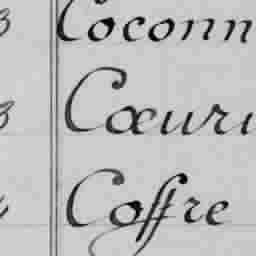 Coconn
Cœuri
Coffre